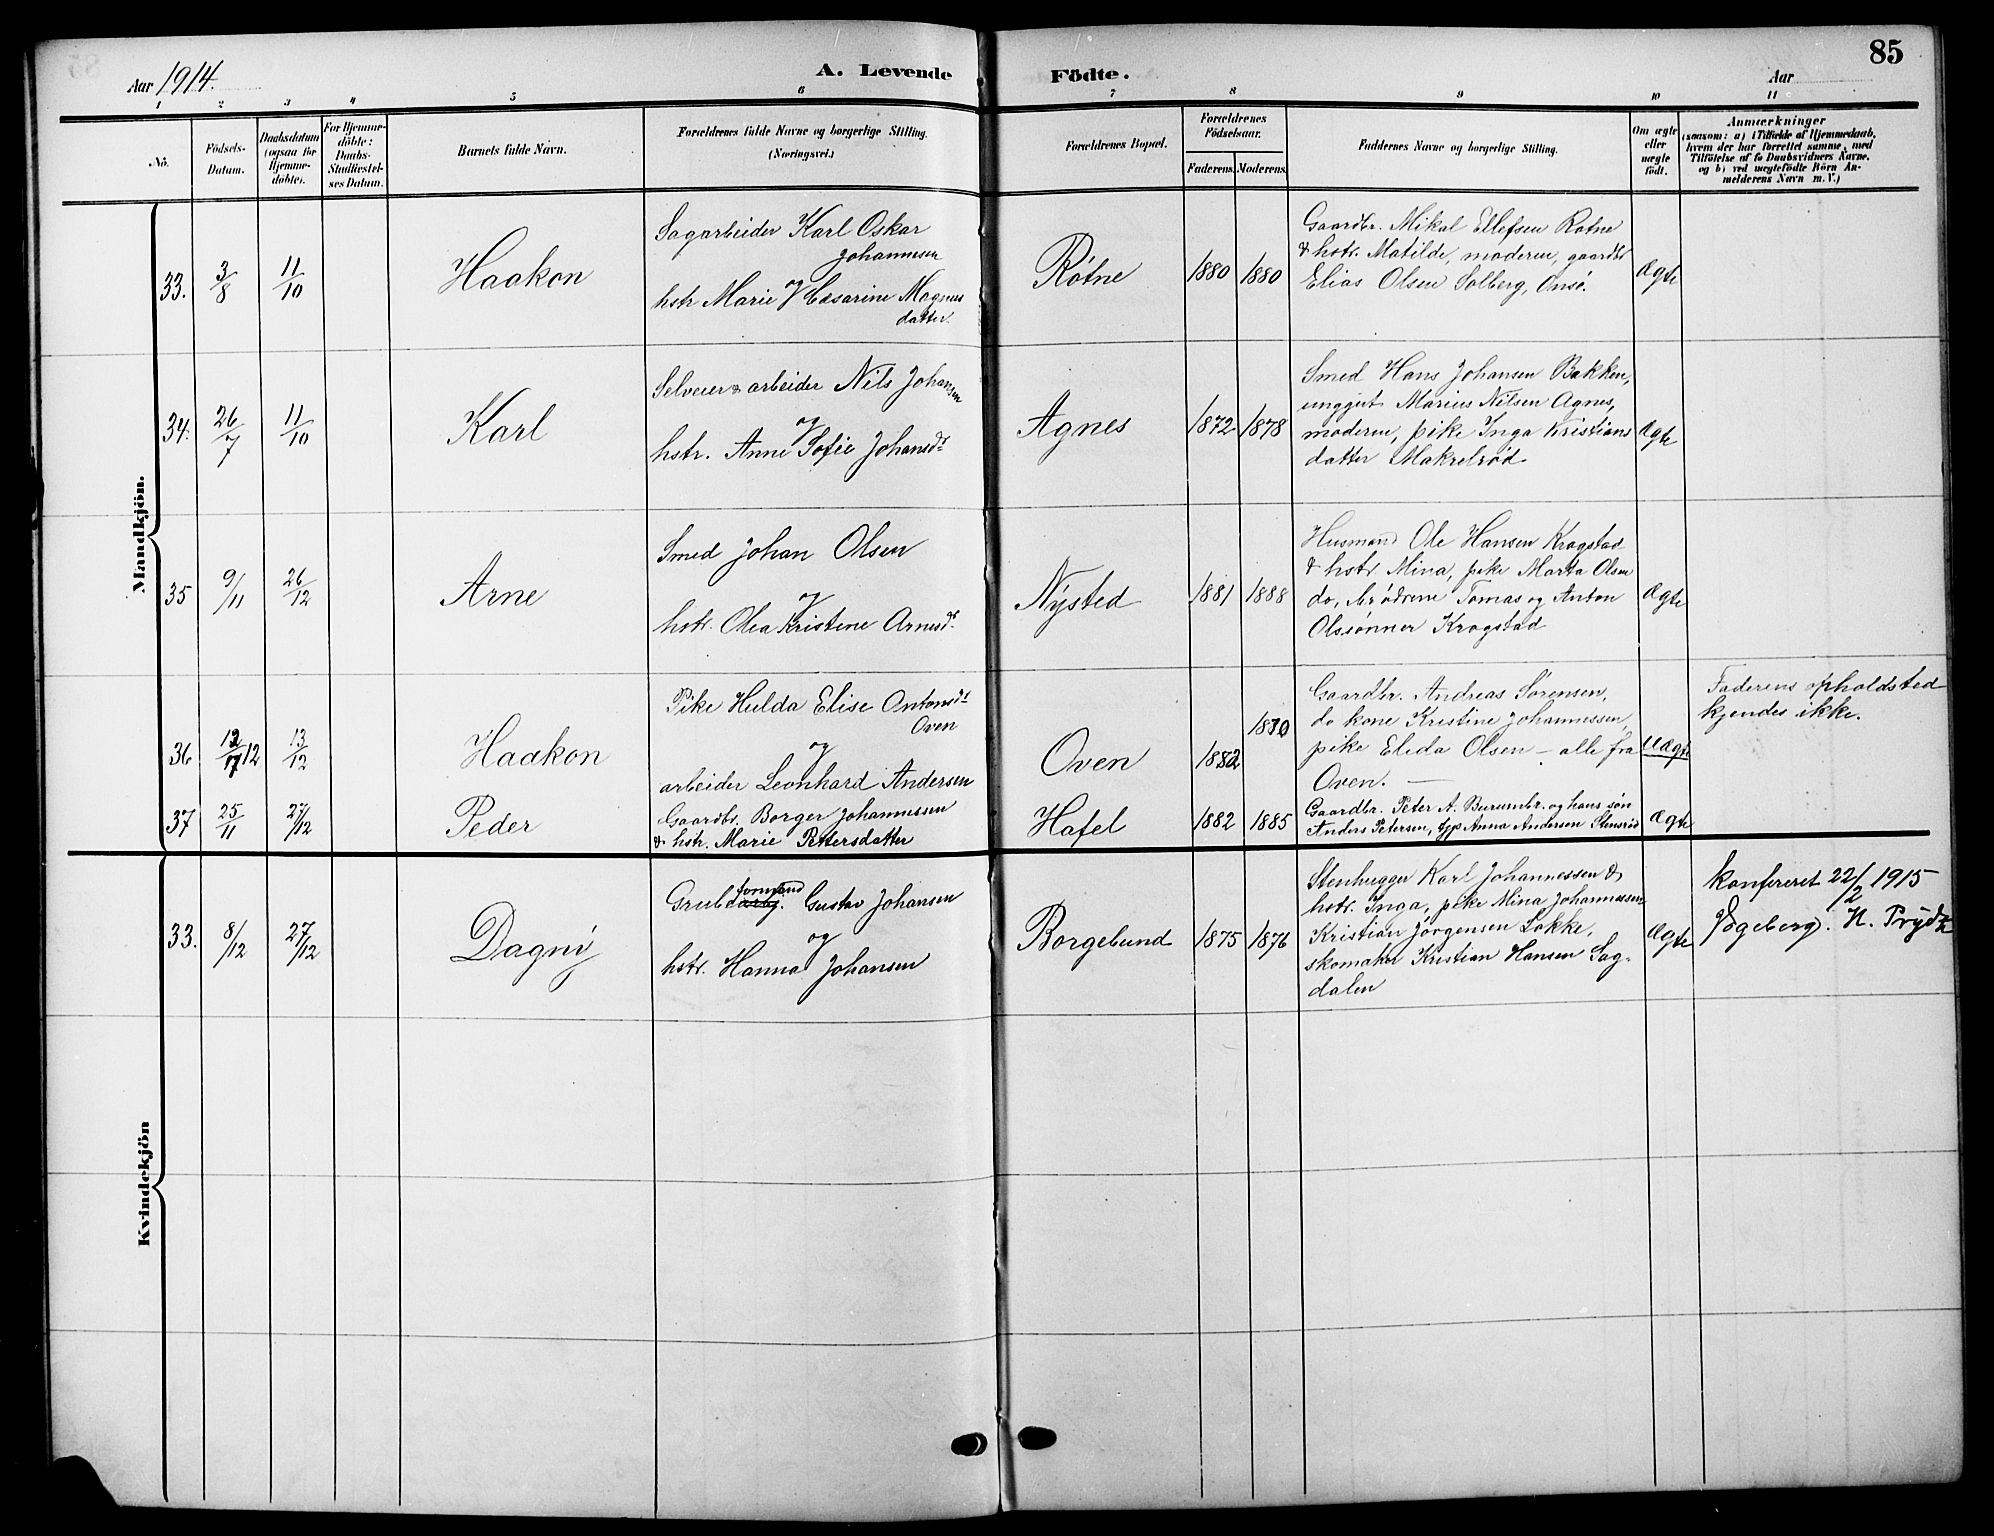 85
Aar 1914.
A. Levende Födte.
Aar
1 2 3 4 5 6 7 8 9 10 11
No.
Födsels-
Datum.
Daabsdatum
(ogsaa for
Hjemme-
döbte).
For Hjemme-
döbte:
Daabs-
Stadfæstel-
ses Datum.
Barnets fulde Navn.
Forældrenes fulde Navne og borgerlige Stilling.
(Næringsvei.)
Forældrenes Bopæl.
Forældrenes
Födselsaar.
Faderens.
Moderens.
Faddernes Navne og borgerlige Stilling.
Om ægte
eller
uægte
födt.
Anmærkninger
(saasom: a) i Tilfælde af Hjemmedaab,
hvem der har forrettet samme, med
Tilföielse af to Daabsvidners Navne,
og b) ved uægtefödte Börn An-
melderens Navn m. V.)
Mandkjön.
33.
3/8
11/10
Haakon
Sagarbeider Karl Oskar
Johannesen
og
hstr Marie Cæsarine Magnus
datter.
Rötne
1880
1880
Gaardbr. Mikal Ellefsen Rötne
& hstr. Matilde, moderen, gaardbr
Elias Olsen Solberg, Onsö.
Ægte
34.
26/7
11/10
Karl
Selveier & arbeider Nils Johansen
og
hstr. Anne Sofie Johansdr
Agnes
1872
1878
Smed Hans Johansen Bakken,
unggut Marius Nilsen Agnes,
moderen, pike Inga Kristians
datter Makrelröd
Ægte
35
9/11
26/12
Arne
Smed Johan Olsen
og
hstr. Olea Kristine Arnesdr.
Nysted
1881
1888
Husmand Ole Hansen Krogstad
& hstr Mina, pike Marta Olsen
do, brödrene Tomas og Anton
Olssönner Krogstad
Ægte
36
13/12
Haakon
Pike Hulda Elise Antonsdr
Oven
og
arbeider Leonhard Andersen
Oven
1882
Gaardbr. Andreas Sörensen,
do kone Kristine Johannessen,
pike Elida Olsen – alle fra
Oven. —
Uægte
Faderens opholdsted
kjendes ikke.
37
25/11
27/12
Peder
Gaardbr. Borger Johannesen
& hstr. Marie Pettersdatter
Hafel
1882
1885
Gaardbr. Peter A. Burumbr. og hans sön
Anders Petersen, Anna Andersen Stensröd
Ægte
Kvindekjön
33.
8/12
27/12
Dagny
formand
Grubearbj. Gustav Johansen
og
hstr. Hanna Johansen
Borgebund
1875
1876
Stenhugger Karl Johannessen &
hstr. Inga, pike Mina Johannessen
Kristian Jörgensen Løkke,
skomaker Kristian Hansen Sag-
dalen
Ægte
konfereret 22/2 1915
Egeberg. N. Prydz